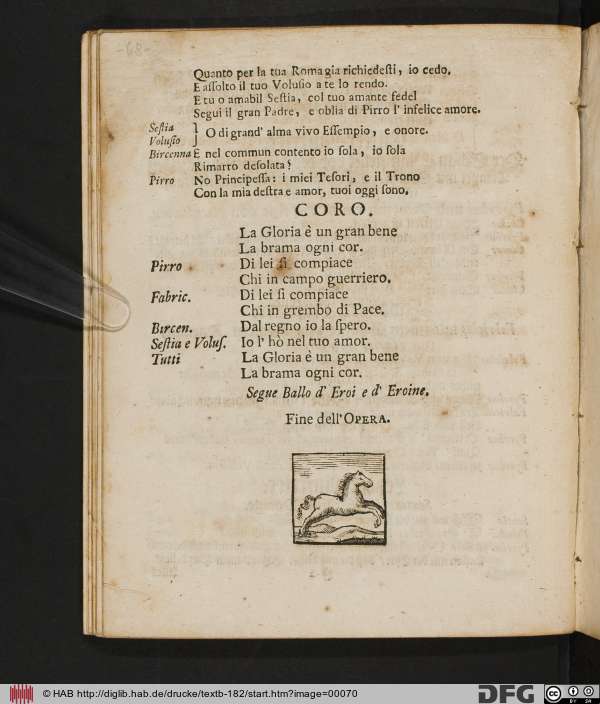 -68-
Quanto per la tua Roma gia richiedesti, io cedo.
E assolto il tuo Volusio a te lo rendo.
E tu o amabil Sestia, col tuo amante fedel
Segui il gran Padre, e oblia di Pirro l' infelice amore.
Sestia
Volusio } O di grand' alma vivo Essempio, e onore.
Bircenna E nel commun contento io sola, io sola
Rimarrò desolata?
Pirro No Principessa: i miei Tesori, e il Trono
Con la mia destra e amor, tuoi oggi sono.
CORO.
La Gloria è un gran bene
La brama ogni cor.
Pirro Di lei si compiace
Chi in campo guerriero.
Fabric. Di lei si compiace
Chi in grembo di Pace.
Bircen. Dal regno io la spero.
Sestia e Volus. Io l' hò nel tuo amor.
Tutti La Gloria è un gran bene
La brama ogni cor.
Segue Ballo d' Eroi e d' Eroine.
Fine dell'OPERA.
© HAB http://diglib.hab.de/drucke/textb-182/start.htm?image=00070
DFG
cc BY SA